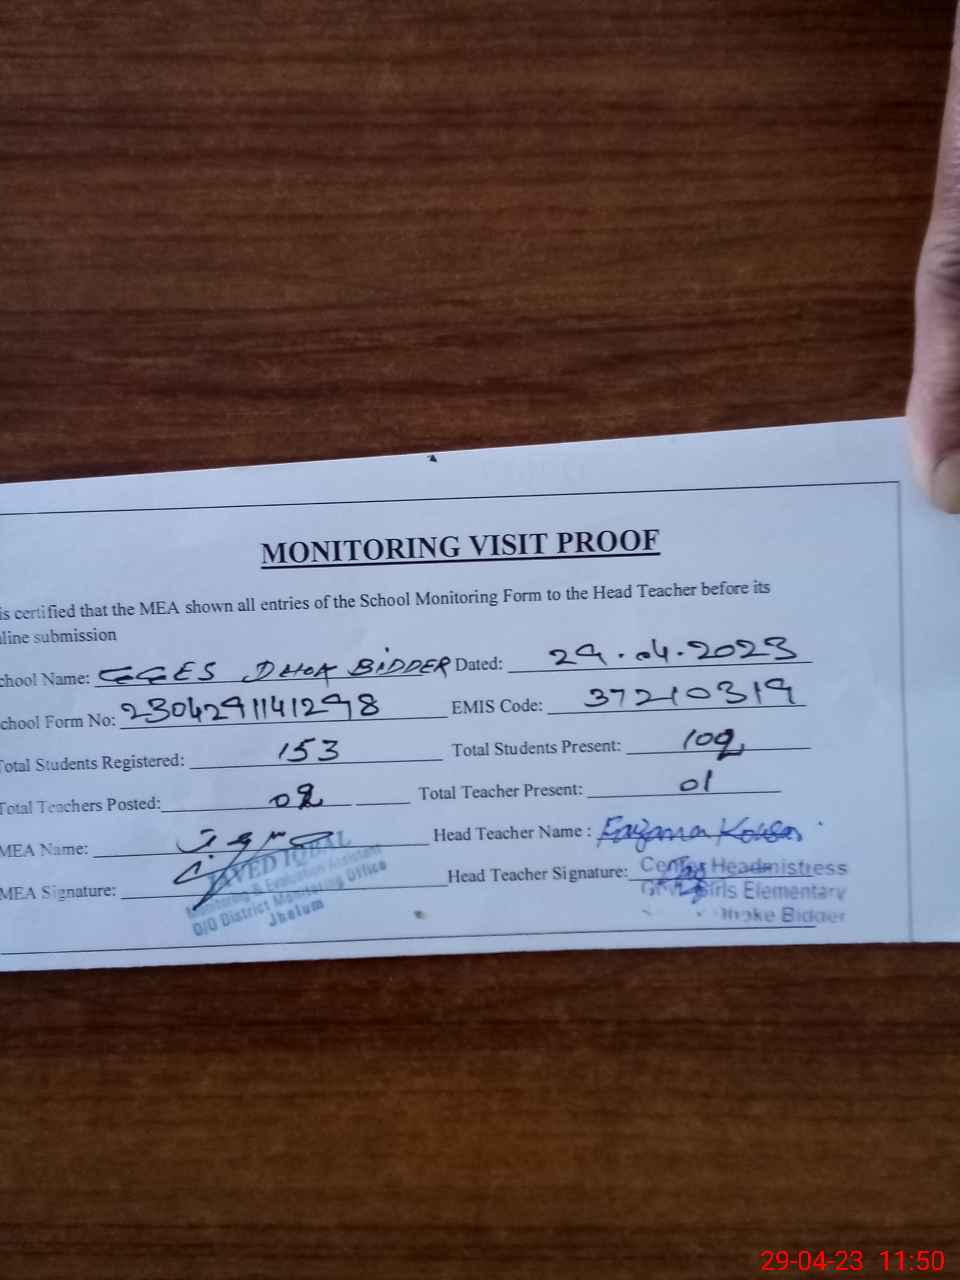 MONITORING VISIT PROOF
is certified that the MEA shown all entries of the School Monitoring Form to the Head Teacher before its
line submission
chool Name: GGES DHOK BIDDER Dated: 29.04.2023
chool Form No: 23042911411298 EMIS Code: 37210319
Total Students Registered: 153 Total Students Present: 102
Total Teachers Posted: 02 Total Teacher Present: 01
MEA Name: Head Teacher Name: Farzana Kousar
MEA Signature: Head Teacher Signature:
JAVED IQBAL
Monitoring & Evaluation Assistant
O/O District Monitoring Office
Jhelum
Center Headmistress
Govt. Girls Elementary
Dhoke Bidder
29-04-23 11:50